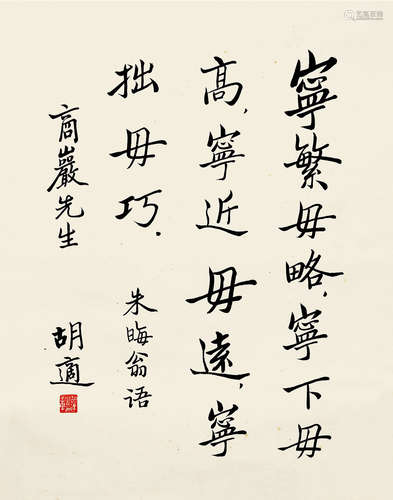 寧繁毋略，寧下毋
高，寧近毋遠，寧
拙毋巧．
朱晦翁语
商巖先生
胡適